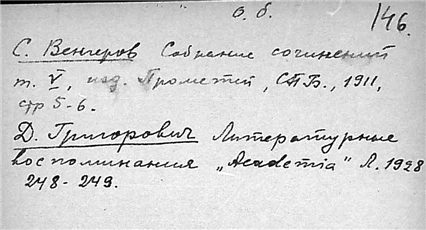 о. б.
146.
С. Венгеров Собрание сочинений
т. V, изд. Прометей, СПБ., 1911,
стр 5-6.
Д. Григорович Литературные
воспоминания „Academia" Л. 1928
248-249.